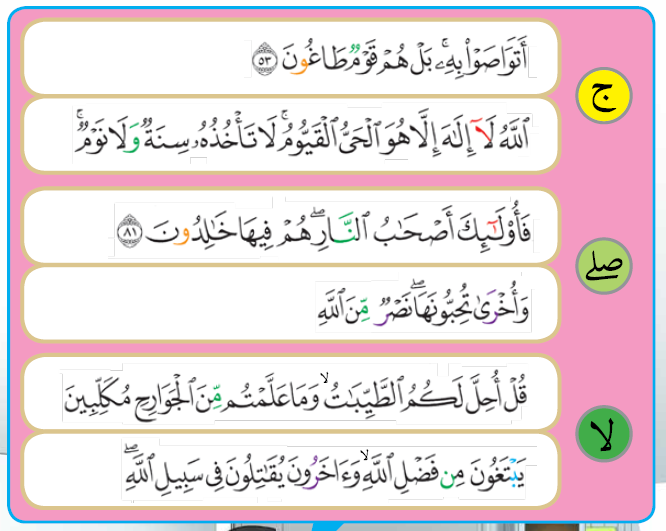 أَتَوَاصَوْا۟ بِهِۦ ۚ بَلْ هُمْ قَوْمٌۭ طَاغُونَ ٥٣
ج
ٱللَّهُ لَآ إِلَٰهَ إِلَّا هُوَ ٱلْحَىُّ ٱلْقَيُّومُ ۚ لَا تَأْخُذُهُۥ سِنَةٌۭ وَلَا نَوْمٌۭ ۚ
فَأُو۟لَٰٓئِكَ أَصْحَٰبُ ٱلنَّارِ ۖ هُمْ فِيهَا خَٰلِدُونَ ٨١
صلے
وَأُخْرَىٰ تُحِبُّونَهَا ۖ نَصْرٌۭ مِّنَ ٱللَّهِ
قُلْ أُحِلَّ لَكُمُ ٱلطَّيِّبَٰتُ ۙ وَمَا عَلَّمْتُم مِّنَ ٱلْجَوَارِحِ مُكَلِّبِينَ
لا
يَبْتَغُونَ مِن فَضْلِ ٱللَّهِ ۙ وَءَاخَرُونَ يُقَٰتِلُونَ فِى سَبِيلِ ٱللَّهِ ۖ